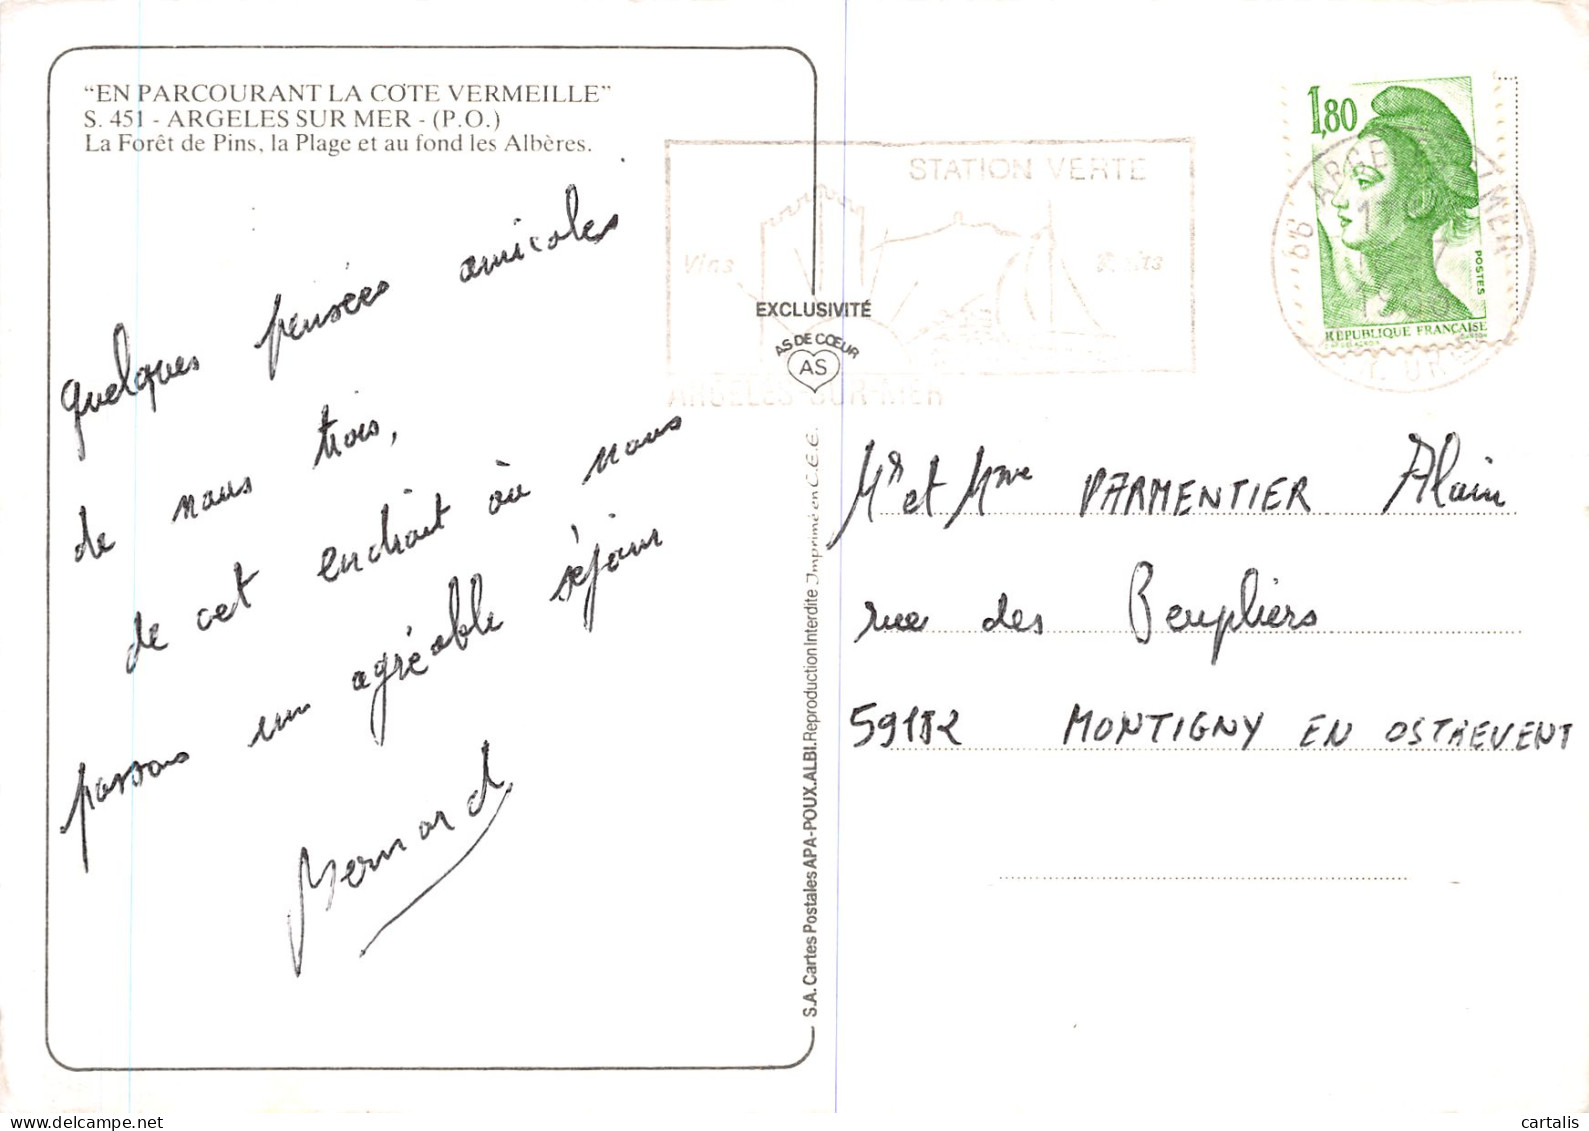 "EN PARCOURANT LA COTE VERMEILLE"
S. 451 - ARGELES SUR MER - (P.O.)
La Forêt de Pins, la Plage et au fond les Albères.
quelques pensées amicales
de nous trois,
de cet endroit où nous
passons un agréable séjour
Bernard
STATION VERTE
Vins
ARGELES-SUR-MER
EXCLUSIVITÉ
AS DE CŒUR
AS
S.A. Cartes Postales APA-POUX.ALBI. Reproduction Interdite Imprimé en C.E.E.
1,80
POSTES
REPUBLIQUE FRANÇAISE
66 ARGELES MER
Mr et Mme PARMENTIER Alain
rue des Peupliers
59182 MONTIGNY EN OSTREVENT
cartalis